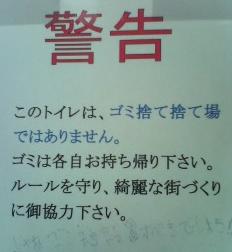 警告
このトイレは、ゴミ捨て捨て場
ではありません。
ゴミは各自お持ち帰り下さい。
ルールを守り、綺麗な街づくり
に御協力下さい。